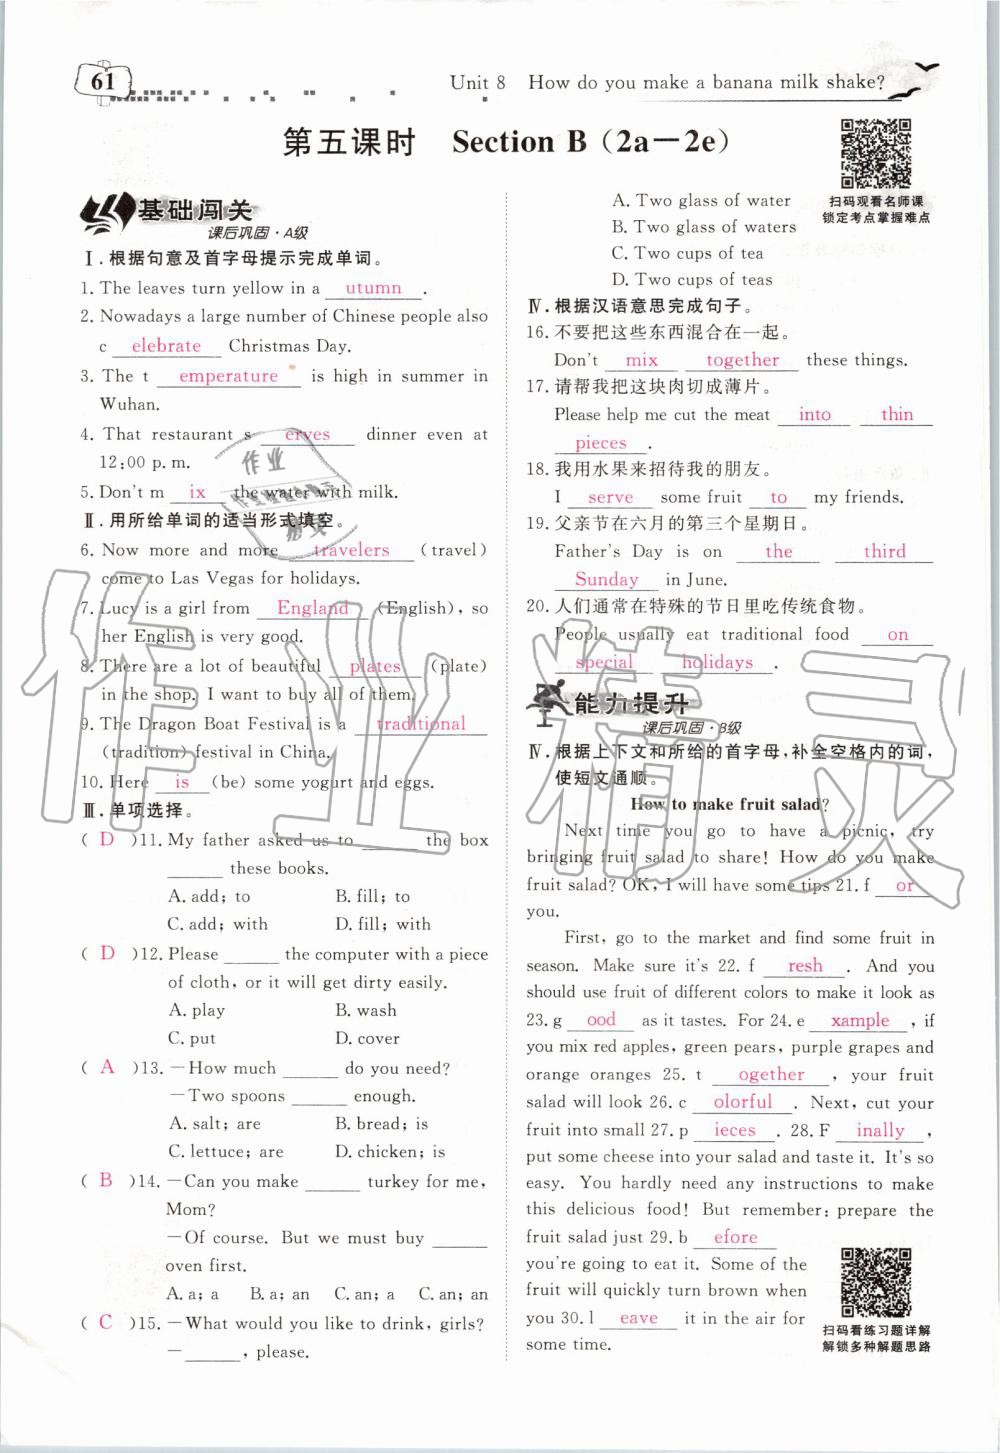 61
Unit 8 How do you make a banana milk shake?
第五课时 Section B (2a—2e)
基础闯关
课后巩固·A级
Ⅰ.根据句意及首字母提示完成单词。
1. The leaves turn yellow in a utumn .
2. Nowadays a large number of Chinese people also
c elebrate Christmas Day.
3. The t emperature is high in summer in
Wuhan.
4. That restaurant s erves dinner even at
12:00 p.m.
5. Don't m ix the water with milk.
Ⅱ.用所给单词的适当形式填空。
6. Now more and more travelers (travel)
come to Las Vegas for holidays.
7. Lucy is a girl from England (English), so
her English is very good.
8. There are a lot of beautiful plates (plate)
in the shop. I want to buy all of them.
9. The Dragon Boat Festival is a traditional
(tradition) festival in China.
10. Here is (be) some yogurt and eggs.
Ⅲ.单项选择。
( D )11. My father asked us to ______ the box
______ these books.
A. add; to B. fill; to
C. add; with D. fill; with
( D )12. Please ______ the computer with a piece
of cloth, or it will get dirty easily.
A. play B. wash
C. put D. cover
( A )13. —How much ______ do you need?
—Two spoons ______ enough.
A. salt; are B. bread; is
C. lettuce; are D. chicken; is
( B )14. —Can you make ______ turkey for me,
Mom?
—Of course. But we must buy ______
oven first.
A. a; a B. a; an C. an; a D. an; an
( C )15. —What would you like to drink, girls?
—______, please.
A. Two glass of water
B. Two glass of waters
C. Two cups of tea
D. Two cups of teas
扫码观看名师课
锁定考点掌握难点
Ⅳ.根据汉语意思完成句子。
16. 不要把这些东西混合在一起。
Don't mix together these things.
17. 请帮我把这块肉切成薄片。
Please help me cut the meat into thin
pieces .
18. 我用水果来招待我的朋友。
I serve some fruit to my friends.
19. 父亲节在六月的第三个星期日。
Father's Day is on the third
Sunday in June.
20. 人们通常在特殊的节日里吃传统食物。
People usually eat traditional food on
special holidays .
能力提升
课后巩固·B级
Ⅳ.根据上下文和所给的首字母,补全空格内的词,
使短文通顺。
How to make fruit salad?
Next time you go to have a picnic, try
bringing fruit salad to share! How do you make
fruit salad? OK, I will have some tips 21. f or
you.
First, go to the market and find some fruit in
season. Make sure it's 22. f resh . And you
should use fruit of different colors to make it look as
23. g ood as it tastes. For 24. e xample , if
you mix red apples, green pears, purple grapes and
orange oranges 25. t ogether , your fruit
salad will look 26. c olorful . Next, cut your
fruit into small 27. p ieces . 28. F inally ,
put some cheese into your salad and taste it. It's so
easy. You hardly need any instructions to make
this delicious food! But remember: prepare the
fruit salad just 29. b efore
you're going to eat it. Some of the
fruit will quickly turn brown when
you 30. l eave it in the air for
some time.
扫码看练习题详解
解锁多种解题思路
作业精灵